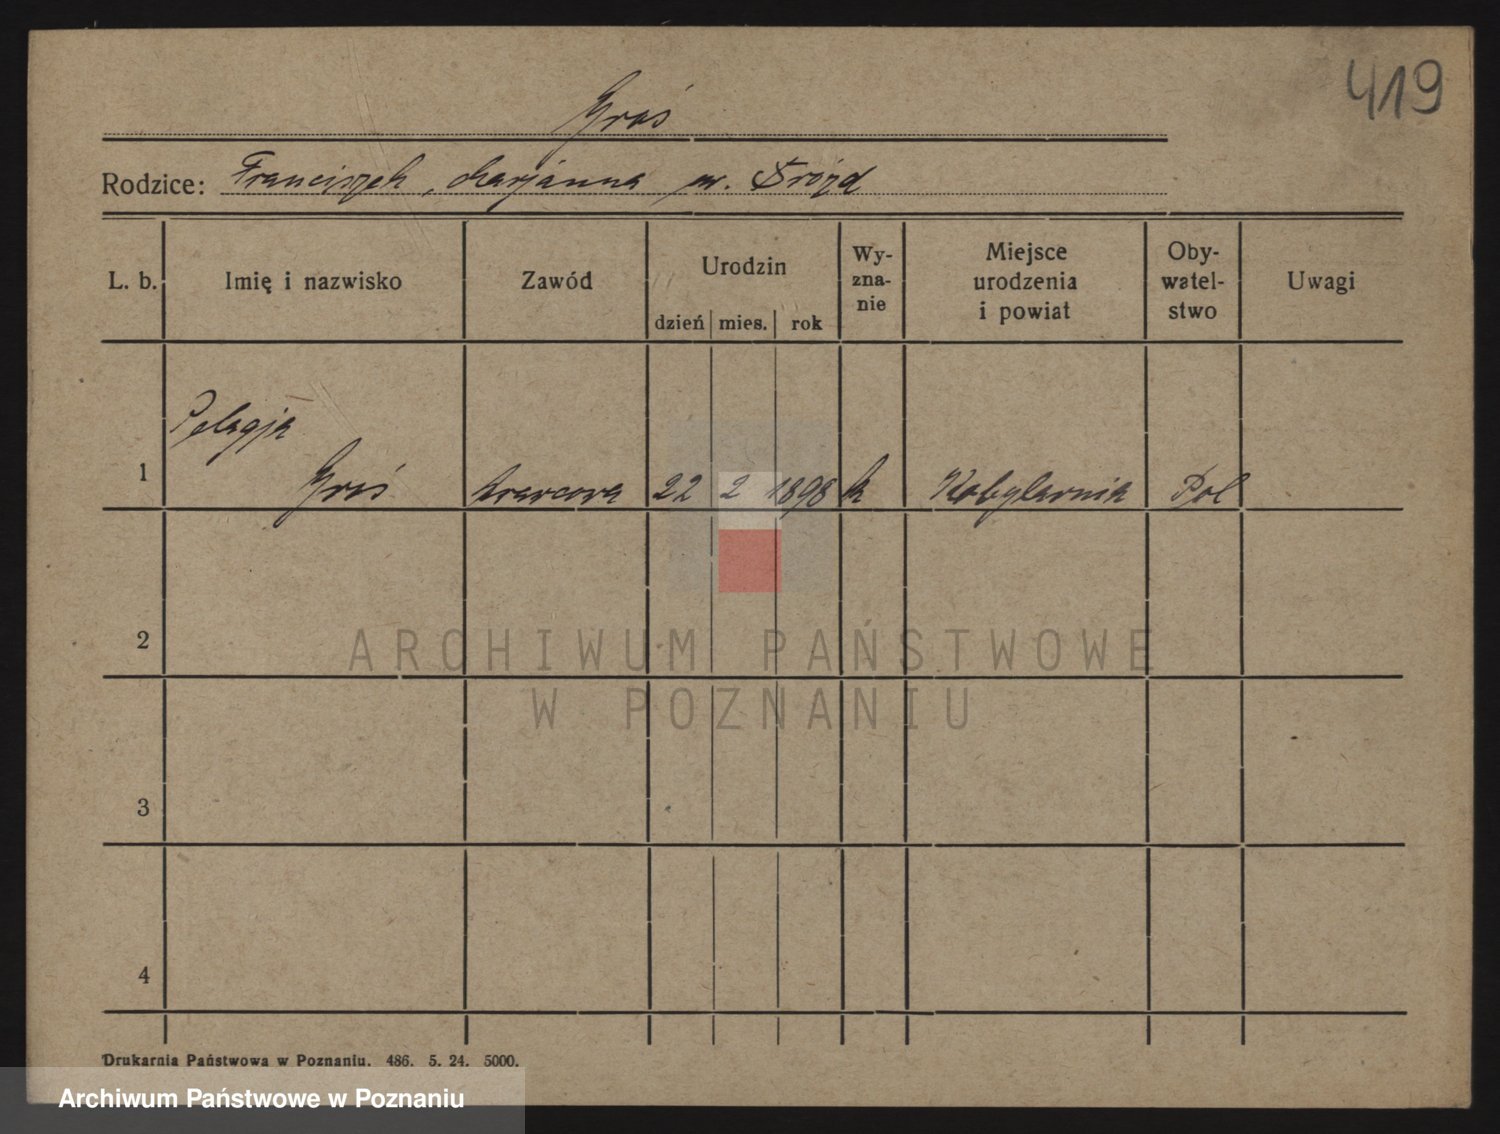 419
Graś
Rodzice: Franciszek, Marjanna ur. Drózd
L. b. Imię i nazwisko Zawód Urodzin dzień mies. rok Wy-zna-nie Miejsce urodzenia i powiat Oby-watel-stwo Uwagi
Pelagja
1 Graś krawcowa 22 2 1898 k Kobylarnia Pol
2
ARCHIWUM PAŃSTWOWE
W POZNANIU
3
4
Drukarnia Państwowa w Poznaniu. 486. 5. 24. 5000.
Archiwum Państwowe w Poznaniu